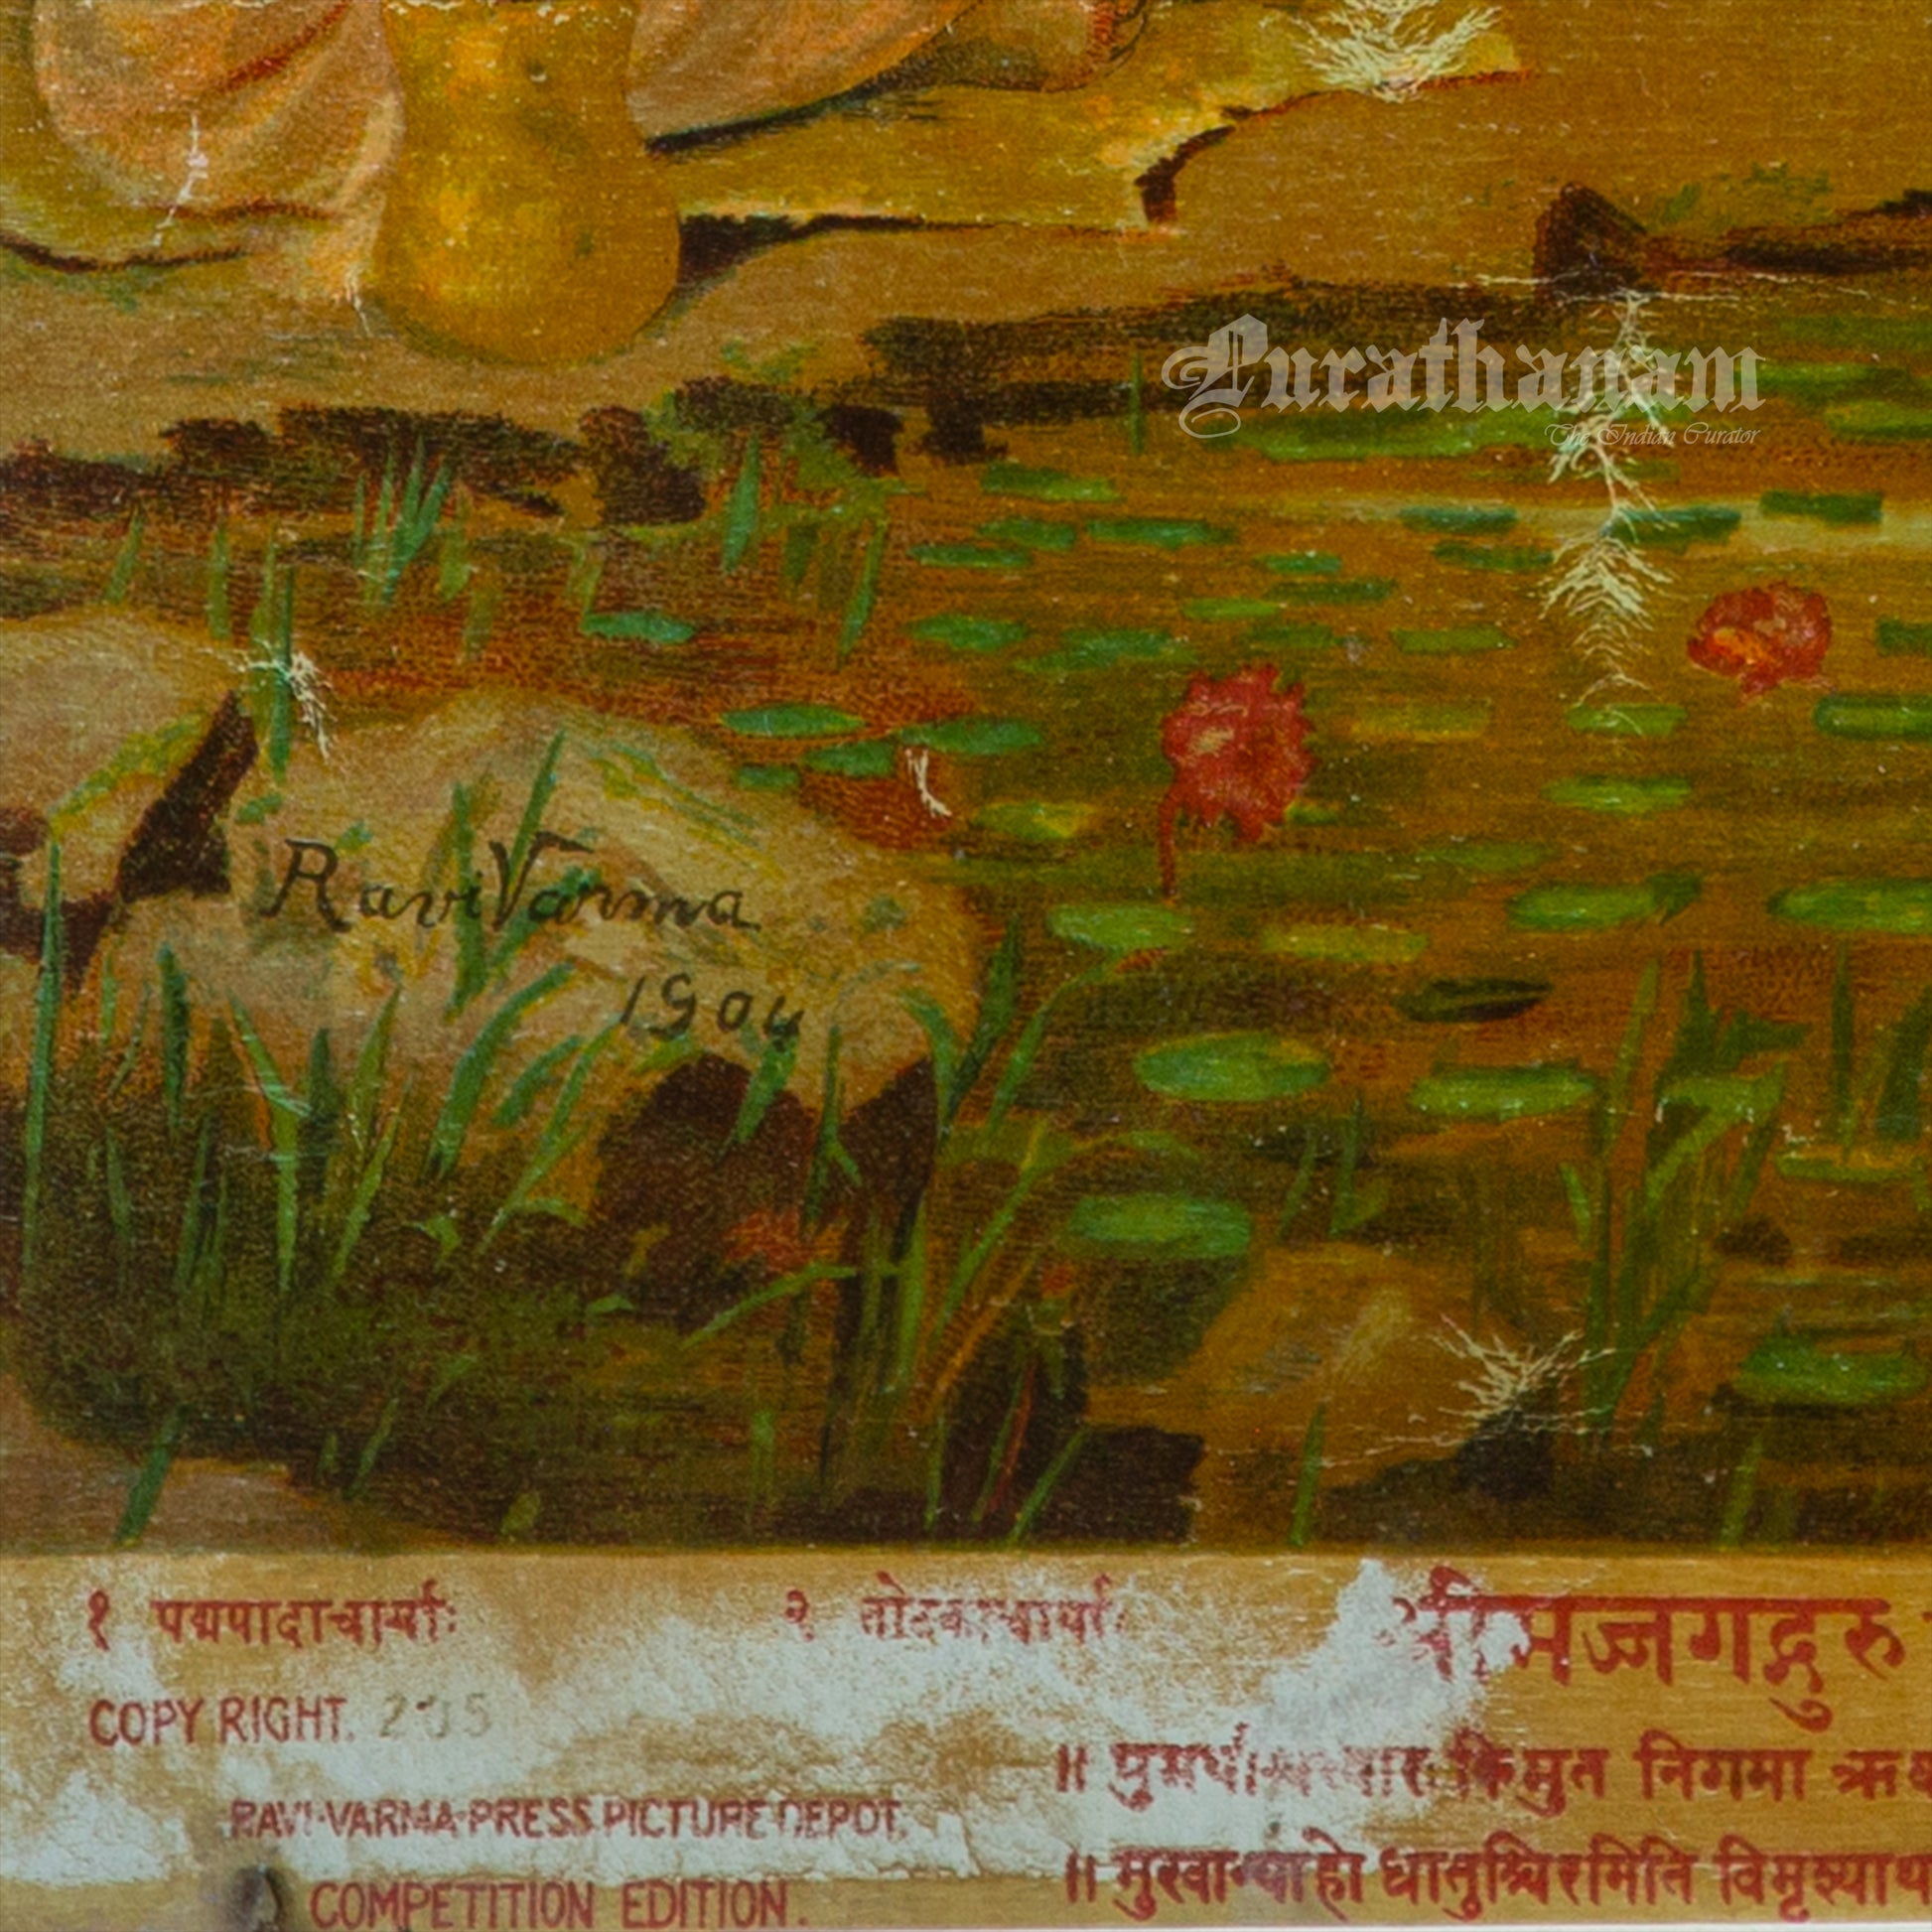 Purathanam
The Indian Curator
Ravi Varma
1904
१ पद्मपादाचार्याः २ तोटकाचार्याः श्रीमज्जगद्गुरु
COPY RIGHT.
॥ किमुत निगमा
RAVI-VARMA-PRESS PICTURE DEPOT.
॥ धातुश्चिरमिति
COMPETITION EDITION.